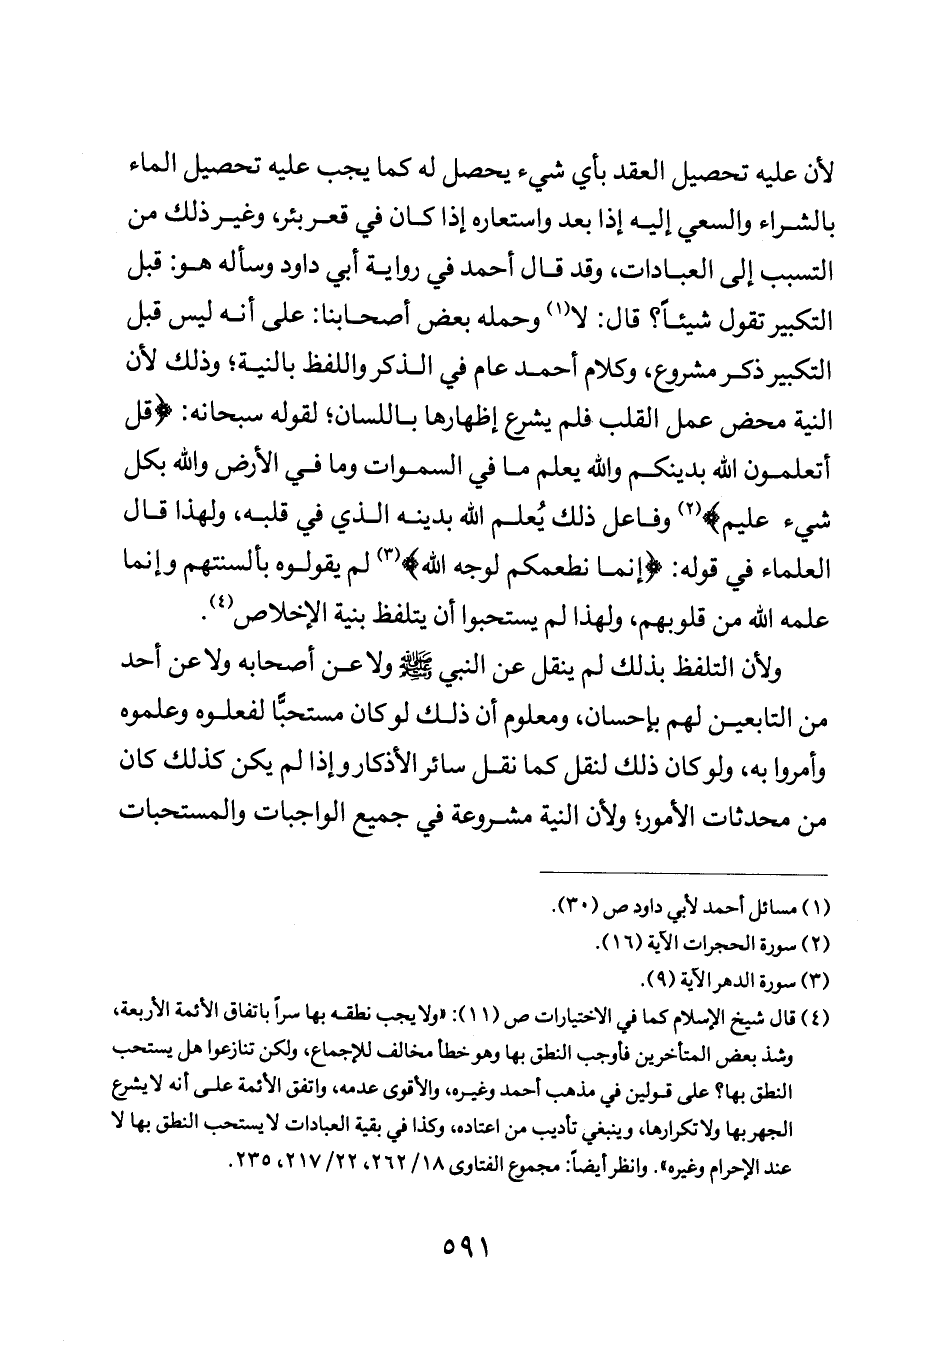 لأن عليه تحصيل العقد بأي شيء يحصل له كما يجب عليه تحصيل الماء
بالشراء والسعي إليه إذا بعد واستعاره إذا كان في قعر بئر، وغير ذلك من
التسبب إلى العبادات، وقد قال أحمد في رواية أبي داود وسأله هو: قبل
التكبير تقول شيئاً؟ قال: لا(١) وحمله بعض أصحابنا: على أنه ليس قبل
التكبير ذكر مشروع، وكلام أحمد عام في الذكر واللفظ بالنية؛ وذلك لأن
النية محض عمل القلب فلم يشرع إظهارها باللسان؛ لقوله سبحانه: ﴿قل
أتعلمون الله بدينكم والله يعلم ما في السموات وما في الأرض والله بكل
شيء عليم﴾(٢) وفاعل ذلك يُعلم الله بدينه الذي في قلبه، ولهذا قال
العلماء في قوله: ﴿إنما نطعمكم لوجه الله﴾(٣) لم يقولوه بألسنتهم وإنما
علمه الله من قلوبهم، ولهذا لم يستحبوا أن يتلفظ بنية الإخلاص(٤).
ولأن التلفظ بذلك لم ينقل عن النبي ﷺ ولا عن أصحابه ولا عن أحد
من التابعين لهم بإحسان، ومعلوم أن ذلك لو كان مستحبًّا لفعلوه وعلموه
وأمروا به، ولو كان ذلك لنقل كما نقل سائر الأذكار وإذا لم يكن كذلك كان
من محدثات الأمور؛ ولأن النية مشروعة في جميع الواجبات والمستحبات
(١) مسائل أحمد لأبي داود ص (٣٠).
(٢) سورة الحجرات الآية (١٦).
(٣) سورة الدهر الآية (٩).
(٤) قال شيخ الإسلام كما في الاختيارات ص (١١): «ولا يجب نطقه بها سراً باتفاق الأئمة الأربعة،
وشذ بعض المتأخرين فأوجب النطق بها وهو خطأ مخالف للإجماع، ولكن تنازعوا هل يستحب
النطق بها؟ على قولين في مذهب أحمد وغيره، والأقوى عدمه، واتفق الأئمة على أنه لا يشرع
الجهر بها ولا تكرارها، وينبغي تأديب من اعتاده، وكذا في بقية العبادات لا يستحب النطق بها لا
عند الإحرام وغيره». وانظر أيضاً: مجموع الفتاوى ١٨/ ٢٦٢، ٢٢/ ٢١٧، ٢٣٥.
٥٩١